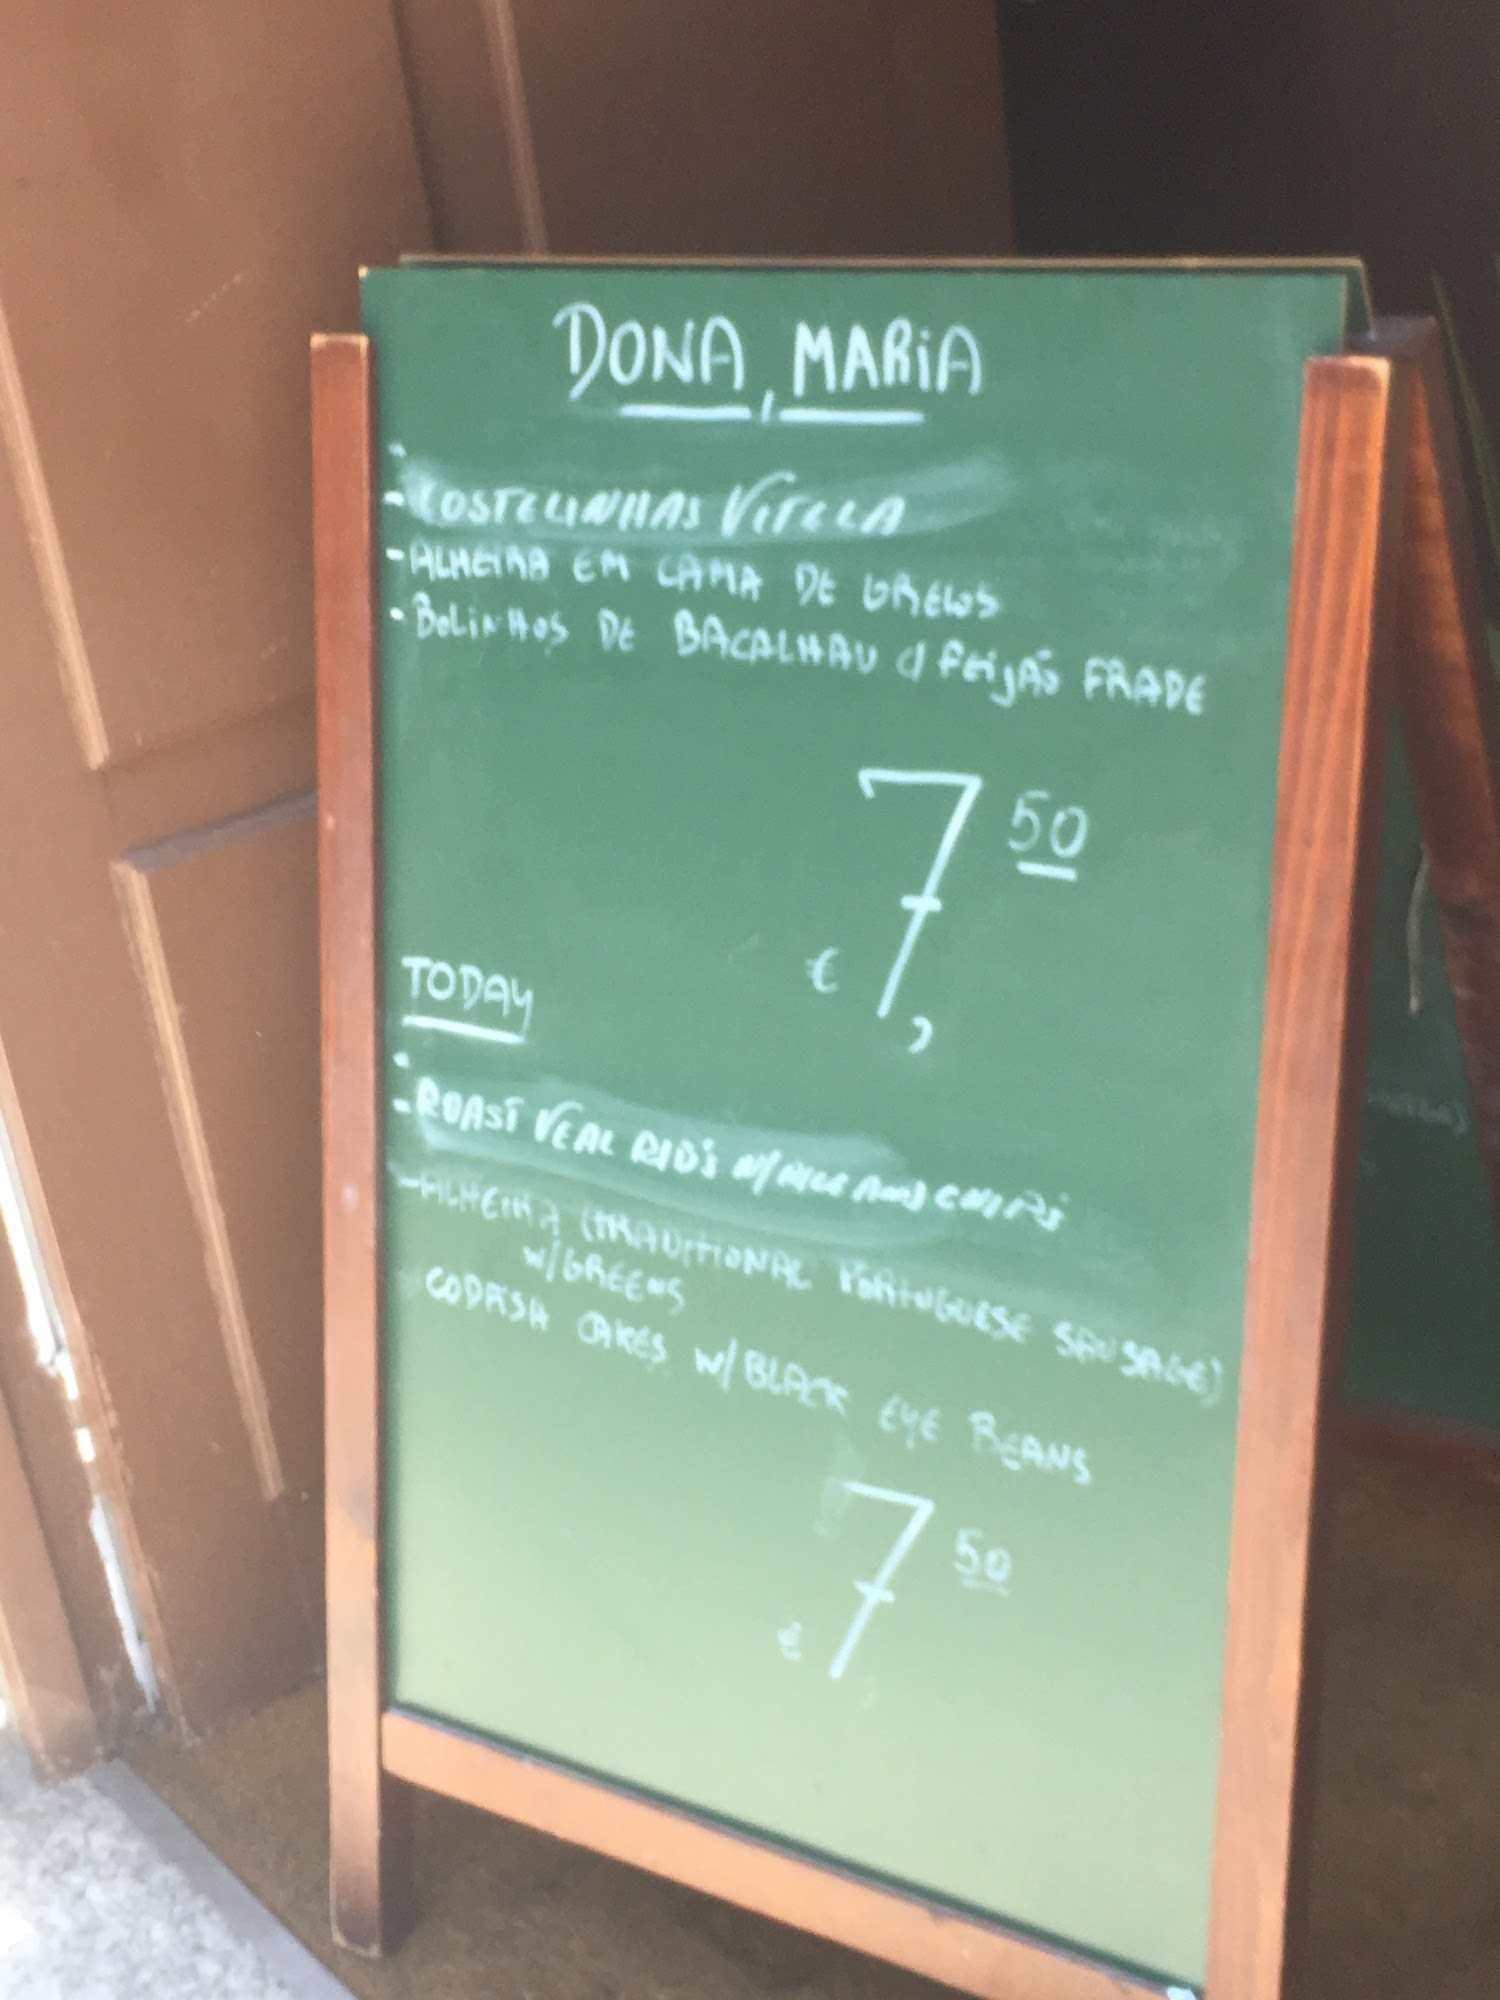 DONA MARIA
- COSTELINHAS VITELA
- ALHEIRA EM CAMA DE GRELOS
- BOLINHOS DE BACALHAU C/ FEIJÃO FRADE
€ 7,50
TODAY
- ROAST VEAL RIB'S W/ RICE AND CHIPS
- ALHEIRA (TRADITIONAL PORTUGUESE SAUSAGE)
W/GREENS
CODFISH CAKES W/BLACK EYE BEANS
€ 7 50